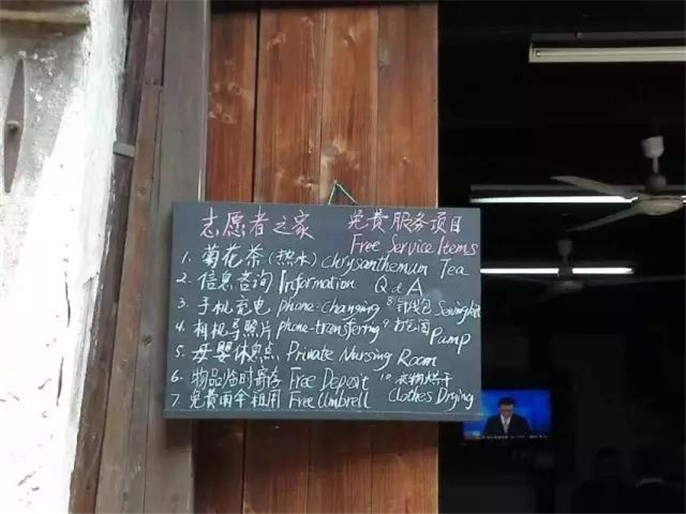 志愿者之家 免费服务项目
Free Service Items
1. 菊花茶(热水) chrysanthemum Tea
2. 信息咨询 Information Q & A
3. 手机充电 phone-changing 8. 针线包 Sewing kit
4. 相机导照片 phone-transfering 9. 打气筒 Pump
5. 母婴休息点 Private Nursing Room
6. 物品临时寄存 Free Deposit 10 衣物烘干
7. 免费雨伞租用 Free Umbrell Clothes Drying